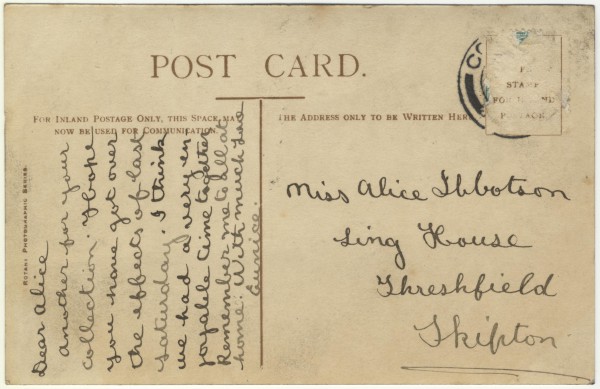 POST CARD.
FOR INLAND POSTAGE ONLY, THIS SPACE MAY
NOW BE USED FOR COMMUNICATION.
THE ADDRESS ONLY TO BE WRITTEN HERE
STAMP
FOR INLAND
POSTAGE
CO
ROTARY PHOTOGRAPHIC SERIES.
Dear Alice
another for your
collection. I hope
you have got over
the effects of last
Saturday. I think
we had a very en
joyable time together
Remember me to all at
home. With much love
Eunice.
Miss Alice Ibbotson
Ling House
Threshfield
Skipton